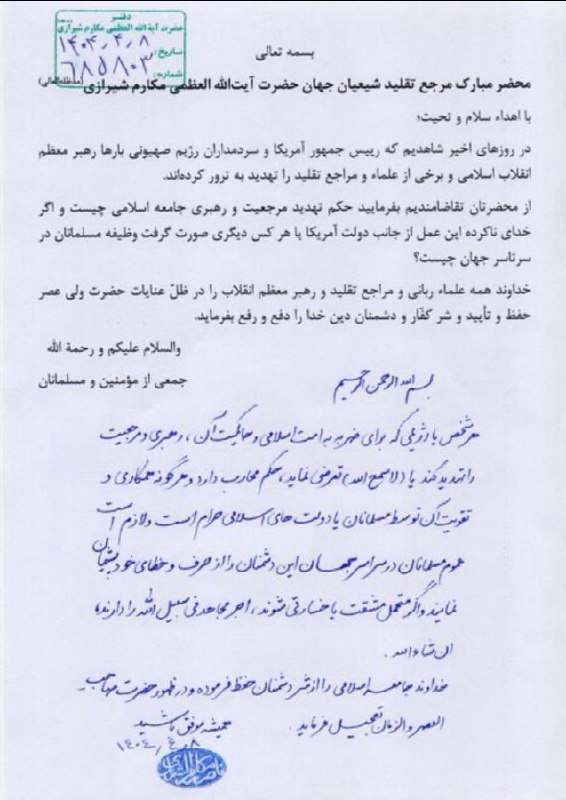 دفتر
حضرت آیة الله العظمی مکارم شیرازی
تاریخ: ۱۴۰۴,۴,۸
شماره: ۶۸۵۸۰۳
بسمه تعالی
محضر مبارک مرجع تقلید شیعیان جهان حضرت آیت‌الله العظمی مکارم شیرازی (مدظله‌العالی)
با اهداء سلام و تحیت؛
در روزهای اخیر شاهدیم که رییس جمهور آمریکا و سردمداران رژیم صهیونی بارها رهبر معظم
انقلاب اسلامی و برخی از علماء و مراجع تقلید را تهدید به ترور کرده‌اند.
از محضرتان تقاضامندیم بفرمایید حکم تهدید مرجعیت و رهبری جامعه اسلامی چیست و اگر
خدای ناکرده این عمل از جانب دولت آمریکا یا هر کس دیگری صورت گرفت وظیفه مسلمانان در
سرتاسر جهان چیست؟
خداوند همه علماء ربانی و مراجع تقلید و رهبر معظم انقلاب را در ظلّ عنایات حضرت ولی عصر
حفظ و تأیید و شر کفّار و دشمنان دین خدا را دفع و رفع بفرماید.
والسلام علیکم و رحمة الله
جمعی از مؤمنین و مسلمانان
بسم الله الرحمن الرحیم
هر شخص یا رژیمی که برای ضربه به امت اسلامی و حاکمیت آن، رهبری و مرجعیت
را تهدید کند یا (لاسمح الله) تعرضی نماید، حکم محارب دارد و هرگونه همکاری و
تقویت آن توسط مسلمانان یا دولت های اسلامی حرام است و لازم است
عموم مسلمانان در سراسر جهان این دشمنان را از حرف و خطای خود پشیمان
نمایند و اگر متحمل مشقت یا خسارتی شوند، اجر مجاهد فی سبیل الله را دارند؛
ان شاءالله.
خداوند جامعه اسلامی را از شر دشمنان حفظ فرموده و در ظهور حضرت صاحب
العصر والزمان تعجیل فرماید.
همیشه موفق باشید
۱۴۰۴/۴/۸